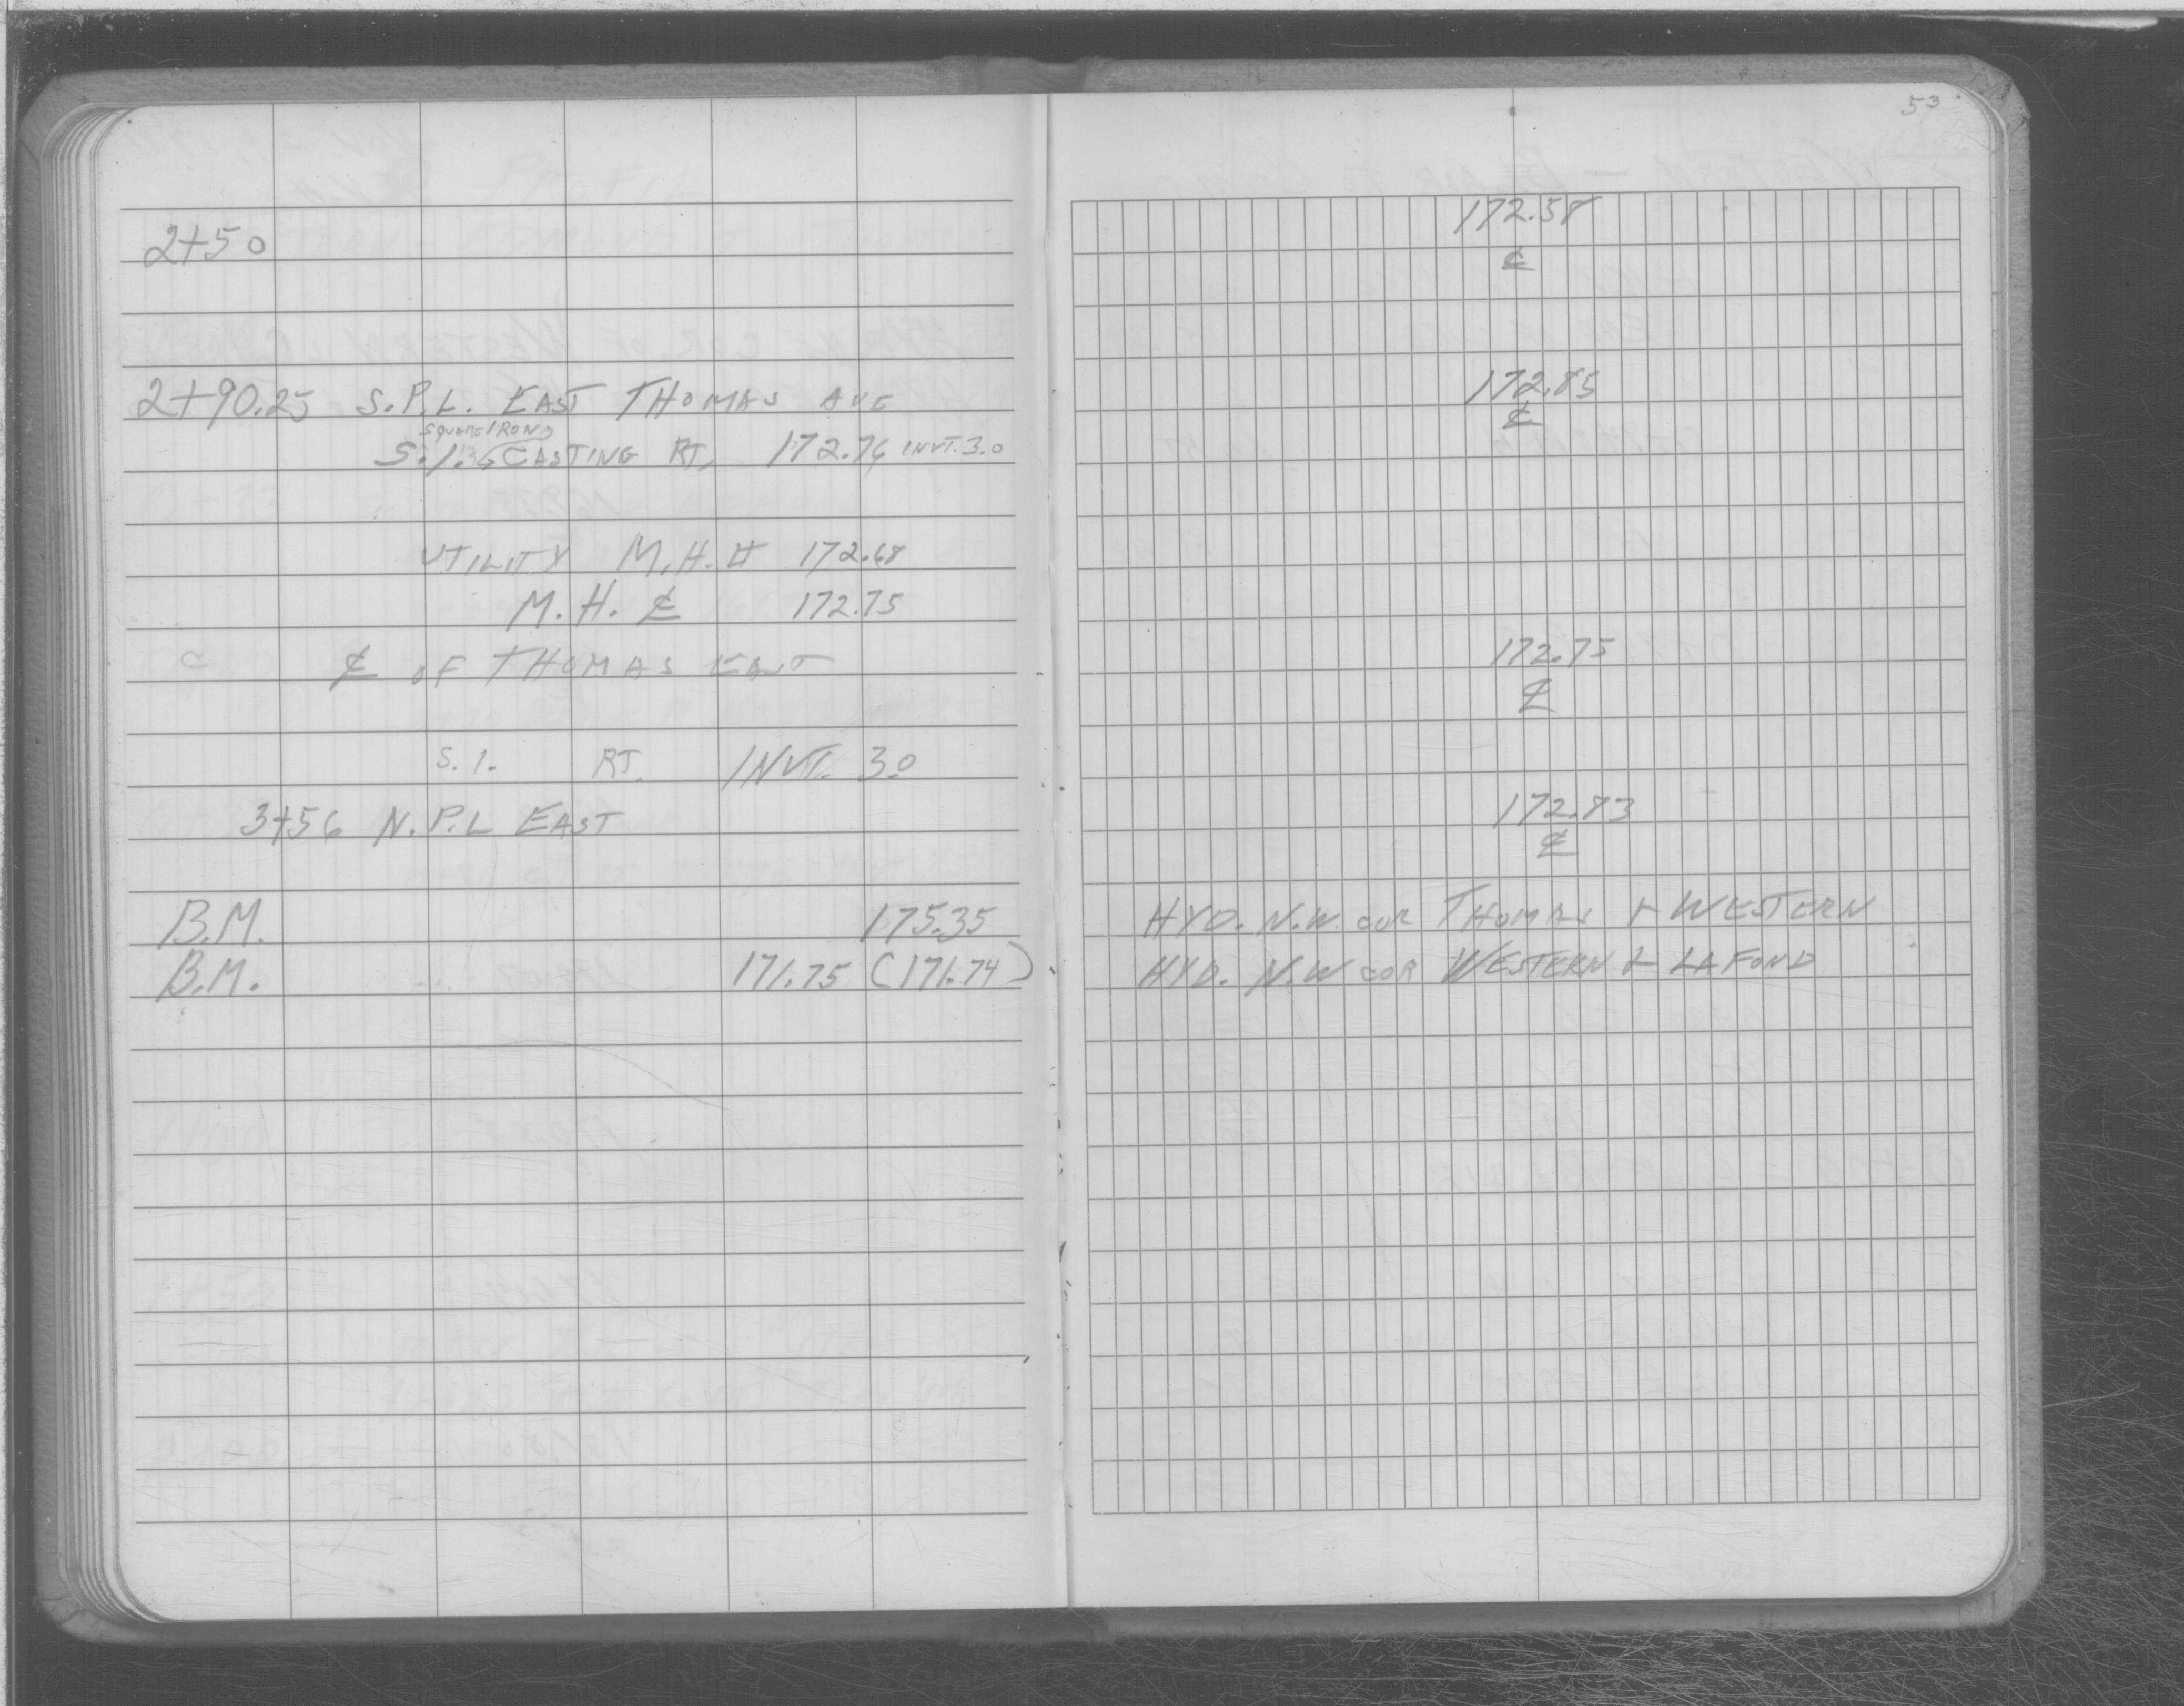 53
2+50 172.58
℄
2+90.25 S.P.L. EAST THOMAS AVE 172.85
℄
SQUARE IRON
S.I. CASTING RT. 172.76 INVT. 3.0
UTILITY M.H. 172.68
M.H. ℄ 172.75
℄ OF THOMAS EAST 172.75
℄
S.I. RT. INVT. 3.0
3+56 N.P.L EAST 172.83
℄
B.M. 175.35 HYD. N.W. COR THOMAS & WESTERN
B.M. 171.75 (171.74) HYD. N.W COR WESTERN & LAFOND